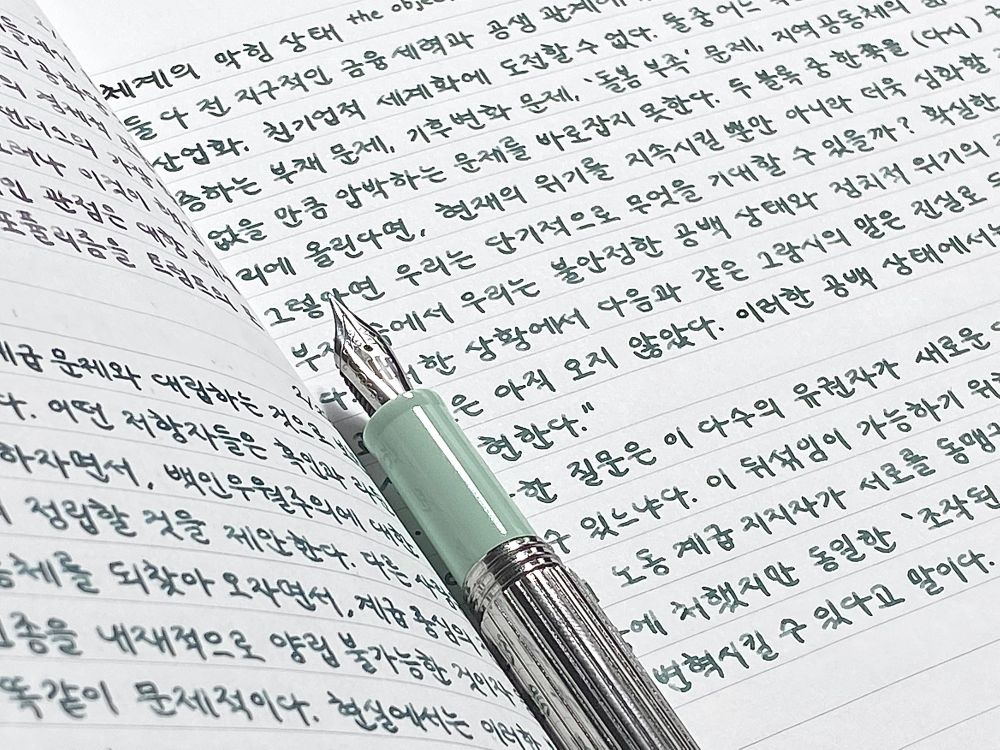 의
샌더스의
그러나 이것이
관점은 대한
포퓰리즘을 트럼프의
계급 문제와 대립하는 것으로
다. 어떤 저항자들은 흑인과
하자면서, 백인우월주의에 대한
정립할 것을 제안한다. 다른
공동체를 되찾아 오자면서, 계급 중심의
인종을 내재적으로 양립 불가능한 것이자
똑같이 문제적이다. 현실에서는 이러한
체계의 막힘 상태 the objec
둘 다 전 지구적인 금융 세력과 공생 관계에
산업화, 친기업적 세계화에 도전할 수 없다. 둘 중 어느
증하는 부채 문제, 기후변화 문제, '돌봄 부족' 문제, 지역공동체의
없을 만큼 압박하는 문제를 바로잡지 못한다. 두 블록 중 한쪽을 (다시)
리에 올린다면, 현재의 위기를 지속시킬 뿐만 아니라 더욱 심화할
그렇다면 우리는 단기적으로 무엇을 기대할 수 있을까? 확실한
부재 속에서 우리는 불안정한 공백 상태와 정치적 위기의
다. 이러한 상황에서 다음과 같은 그람시의 말은 진실로
은 아직 오지 않았다. 이러한 공백 상태에서는
현한다."
한 질문은 이 다수의 유권자가 새로운
수 있느냐다. 이 뒤섞임이 가능하기 위
노동 계급 지지자가 서로를 동맹
에 처했지만 동일한 '조작된
변혁시킬 수 있다고 말이다.